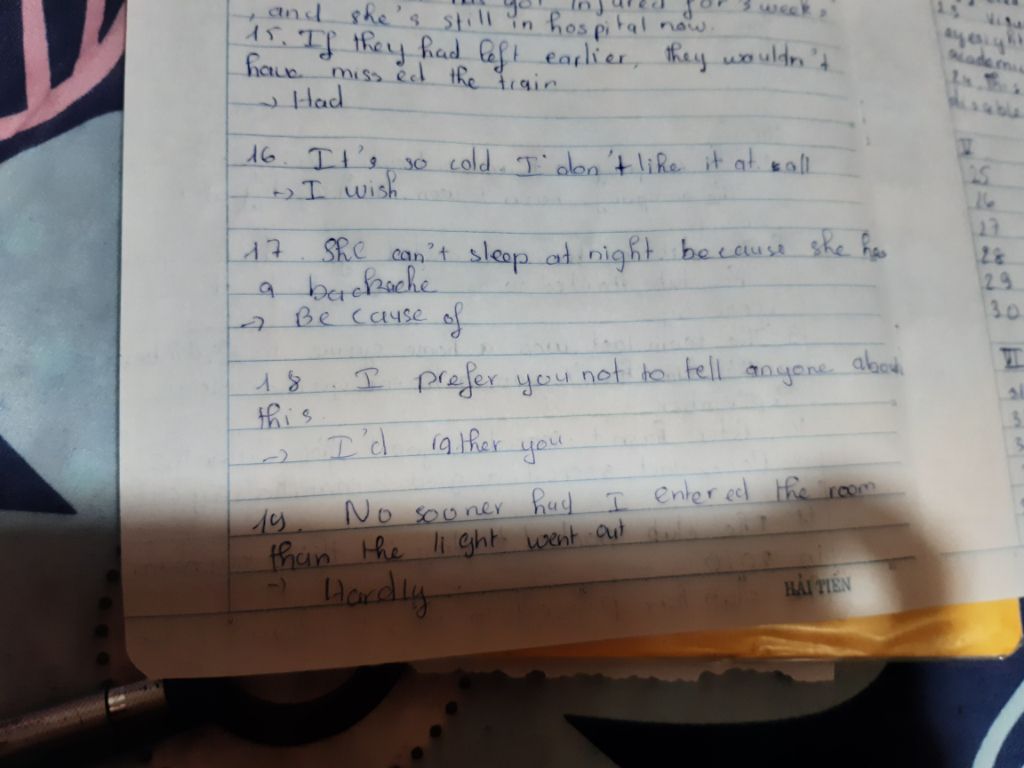 injured for 3 week,
, and she's still in hospital now.
15. If they had left earlier, they wouldn't
have missed the train
→ Had
16. It's so cold. I don't like it at all
→ I wish
17. She can't sleep at night because she has
a backache
→ Because of
18. I prefer you not to tell anyone about
this.
→ I'd rather you
19. No sooner had I entered the room
than the light went out
→ Hardly
HẢI TIẾN
eyesight
academic
24. This
disable
V
25
26
27
28
29
30
VI